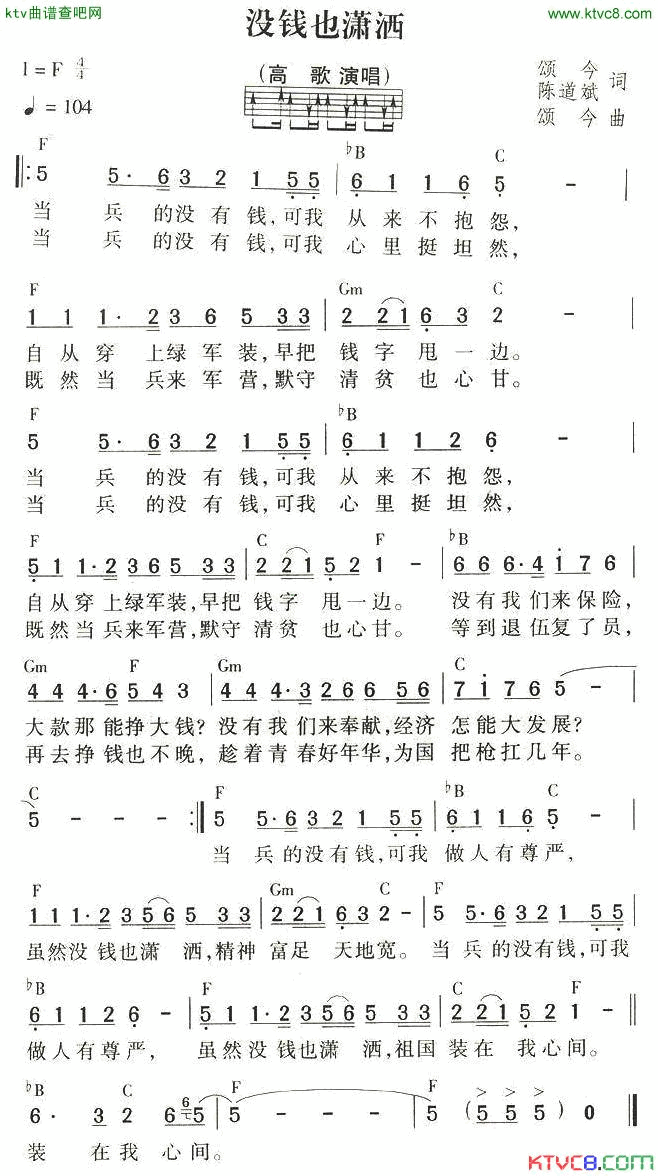 ktv曲谱查吧网
www.ktvc8.com
没钱也潇洒
1=F 4/4
(高 歌 演唱)
颂 今
陈道斌 词
♩=104
颂 今 曲
F ♭B C
5 5·6 3 2 1 5 5 6 1 1 6 5 -
当 兵 的没有钱,可我 从来不抱怨,
当 兵 的没有钱,可我 心里挺坦然,
F Gm C
1 1 1·2 3 6 5 3 3 2 2 2 1 6 3 2 -
自从穿 上绿军装,早把 钱字甩一边。
既然当 兵来军营,默守 清贫也心甘。
F ♭B
5 5·6 3 2 1 5 5 6 1 1 2 6 -
当 兵 的没有钱,可我 从来不抱怨,
当 兵 的没有钱,可我 心里挺坦然,
F C F ♭B
5 1 1·2 3 6 5 3 3 2 2 2 1 5 2 1 6 6 6·4 1 7 6
自从穿上绿军装,早把 钱字 甩一边。 没有我们来保险,
既然当兵来军营,默守 清贫 也心甘。 等到退伍复了员,
Gm F Gm C
4 4 4·6 5 4 3 4 4 4·3 2 6 6 5 6 7 1 7 6 5 -
大款那能挣大钱?没有我们来奉献,经济 怎能大发展?
再去挣钱也不晚,趁着青春好年华,为国 把枪扛几年。
C F ♭B C
5 - - - 5 5·6 3 2 1 5 5 6 1 1 6 5 -
当 兵的没有钱,可我 做人有尊严,
F Gm C F
1 1 1·2 3 5 6 5 3 3 2 2 1 6 3 2 - 5 5·6 3 2 1 5 5
虽然没钱也潇 洒,精神 富足 天地宽。 当 兵的没有钱,可我
♭B F C F
6 1 1 2 6 - 5 1 1·2 3 5 6 5 3 3 2 2 1 5 2 1 -
做人有尊严, 虽然没钱也潇 洒,祖国 装在 我心间。
♭B C F F
6· 3 2 6 6 5 5 - - - 5 (5 5 5) 0
装 在我 心间。
KTVC8.com